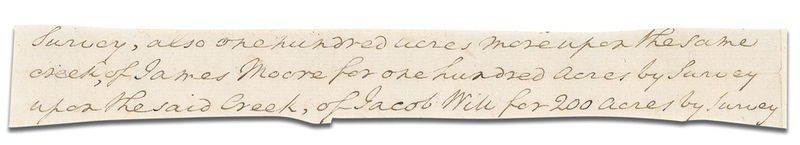 Survey, also one hundred acres more upon the same
creek, of James Moore for one hundred acres by Survey
upon the said Creek, of Jacob Will for 200 acres by Survey